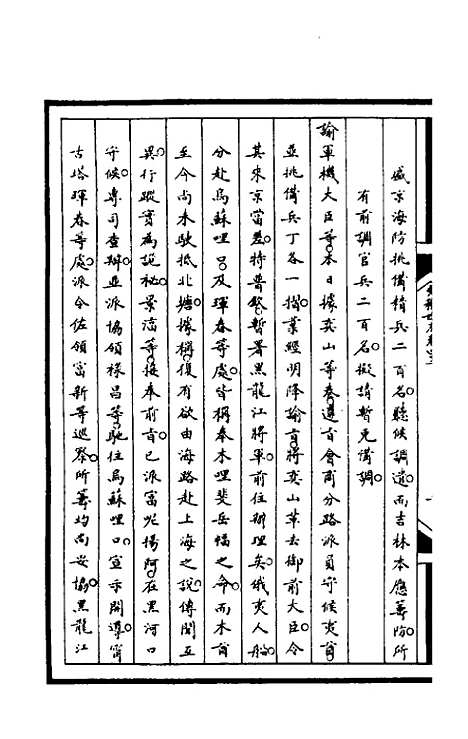 盛京海防挑備精兵二百名。聽候調遣。而吉林本應籌防所
有前調官兵二百名。擬請暫免備調。
諭軍機大臣等。本日據奕山等奏。遵旨會商分路派員守候夷酋
並挑備兵丁各一摺。業經明降諭旨。將奕山革去御前大臣。令
其來京當差。特普欽。暫署黑龍江將軍。前往辦理矣。俄夷人船。
分赴烏蘇哩口。及琿春等處。皆稱奉木哩斐岳幅之命。而木酋
至今尚未駛抵北塘。據稱。復有欲由海路赴上海之說。傳聞互
異。行蹤實為詭秘。景淳等。接奉前旨。已派富呢揚阿。在黑河口
守候。專司查辦。並派協領祿昌等。馳往烏蘇哩口。宣示開導。甯
古塔琿春等處。派令佐領富新等巡察。所籌均尚妥協。黑龍江